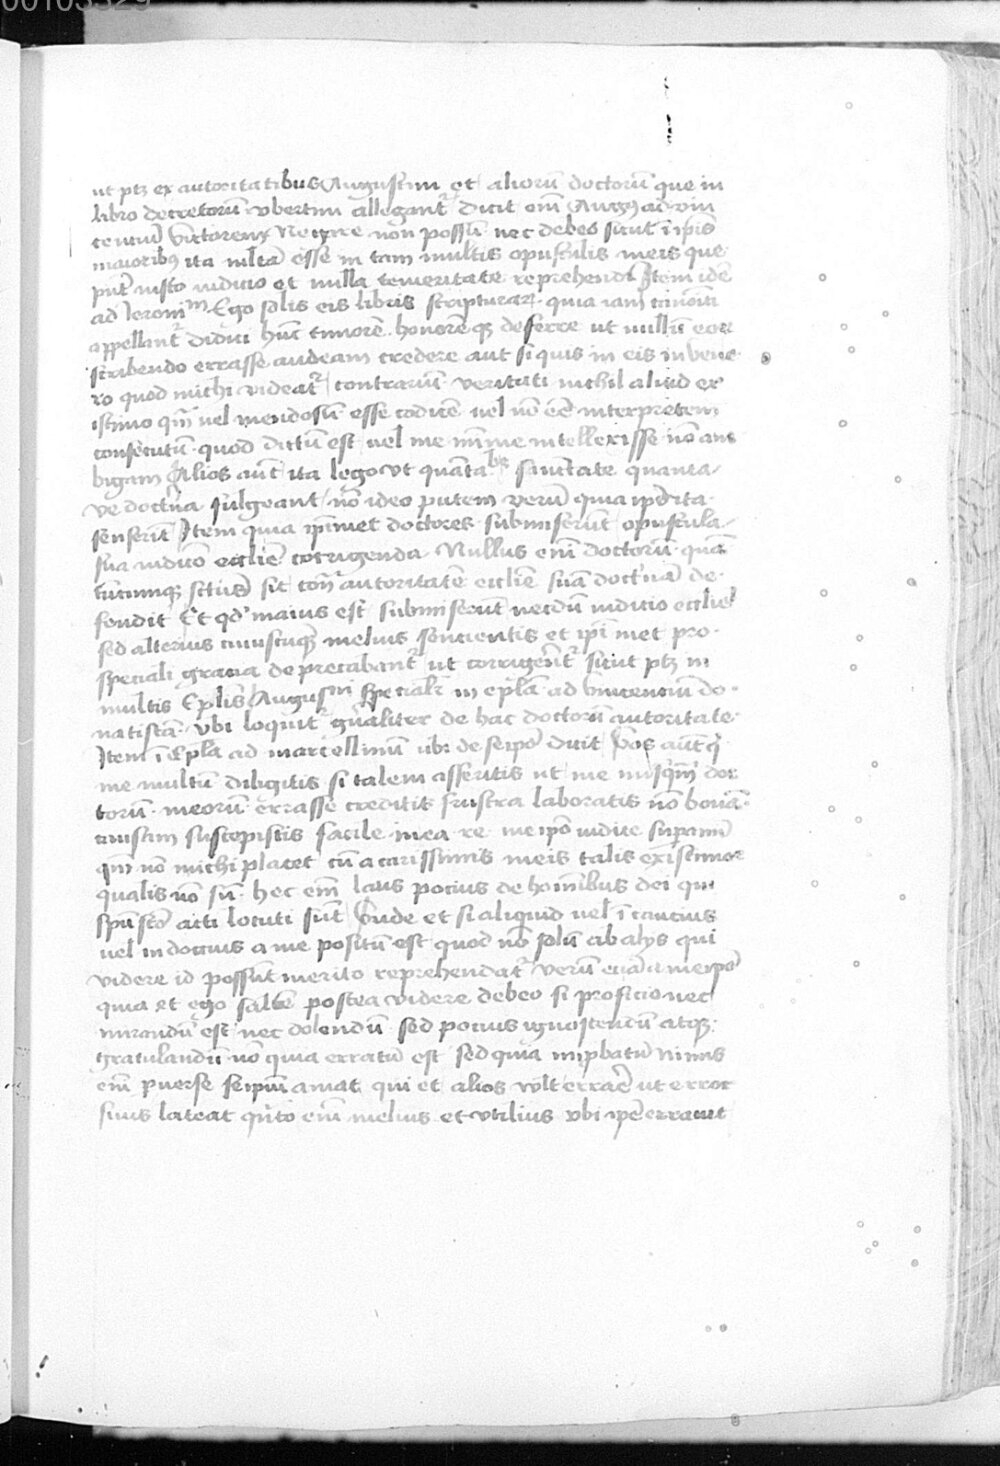 00103329
ut ptꝫ ex autoritatibus Augustini et aliorū doctorū que in
libro decretorū vbertim allegant᷑ Dicit em̄ Augꝰ ad vin
centiū victorem Negare non possū nec debeo sicut ī ip̄is
maioribꝰ ita multa esse in tam multis opusculis meis que
pn̄t iusto iudicio et nulla temeritate reprehendi Item idē
ad Ieronimᵐ Ego solis eis libris scripturaꝝ quia iam canonici
appellant᷑ didici hūc timorē honorēqꝫ deferre ut nullū eoꝝ
scribendo errasse audeam credere aut si quis in eis inuene
ro quod michi videat᷑ contrarium veritati nichil aliud ex
istimo qm̄ uel mendosū esse codicē uel nō eē interpretem
consecutū quod dictū est uel me minime intellexisse nō am
bigam Alios aūt ita lego ut quantalꝫ sanctitate quanta
ve doctⁱna fulgeant nō ideo putem verū quia ip̄i ita
senserūt Item quia ip̄imet doctores submiserūt opuscula
sua iudicō eccl̄ie corrigenda Nullus em̄ doctorū quā
tūcumqꝫ sctūs sit cont᷑ autoritatē eccl̄ie suā doctⁱnā de
fendit Et qd̓ maius est submiserūt necdū iudicio eccl̄ie
sed alterius cuiuscūqꝫ melius sencientis et ip̄i met pro
speciali gracia deprecabant᷑ ut corrigerēt᷑ sicut ptꝫ in
multis Ep̄lis Augusⁿⁱ specialr̄ in ep̄la ad vincenciū do
natistā vbi loquit᷑ gn̄aliter de hac doctorū autoritate
Item ī Ep̄la ad marcellinū ubi de seip̄o dicit Vos aūt q̄
me multū diligitis si talem asseritis ut me nusqm̄ doc
torū meorū errasse creditis frustra laboratis nō bonā
causam suscepistis facile mea re me ip̄o iudice supamī
qm̄ nō michi placet cū a carissimis meis talis existimor
qualis nō sū hec em̄ laus pocius de hominibus dei qui
spū sctō acti locuti sūt Vnde et si aliquid uel ī caucius
uel indoccius a me positū est quod nō solū ab alijs qui
videre id possūt merito reprehendat᷑ verū eciā a meip̄o
quia et ego saltē postea videre debeo si proficio nec
mirandū est nec dolendū sed pocius ignoscendū atqꝫ
gratulandū nō quia erratū est sed quia improbatū nimis
em̄ puerse seip̄m amat qui et alios vult errare ut error
suus lateat qn̄to em̄ melius et vtilius vbi ip̄e errauit